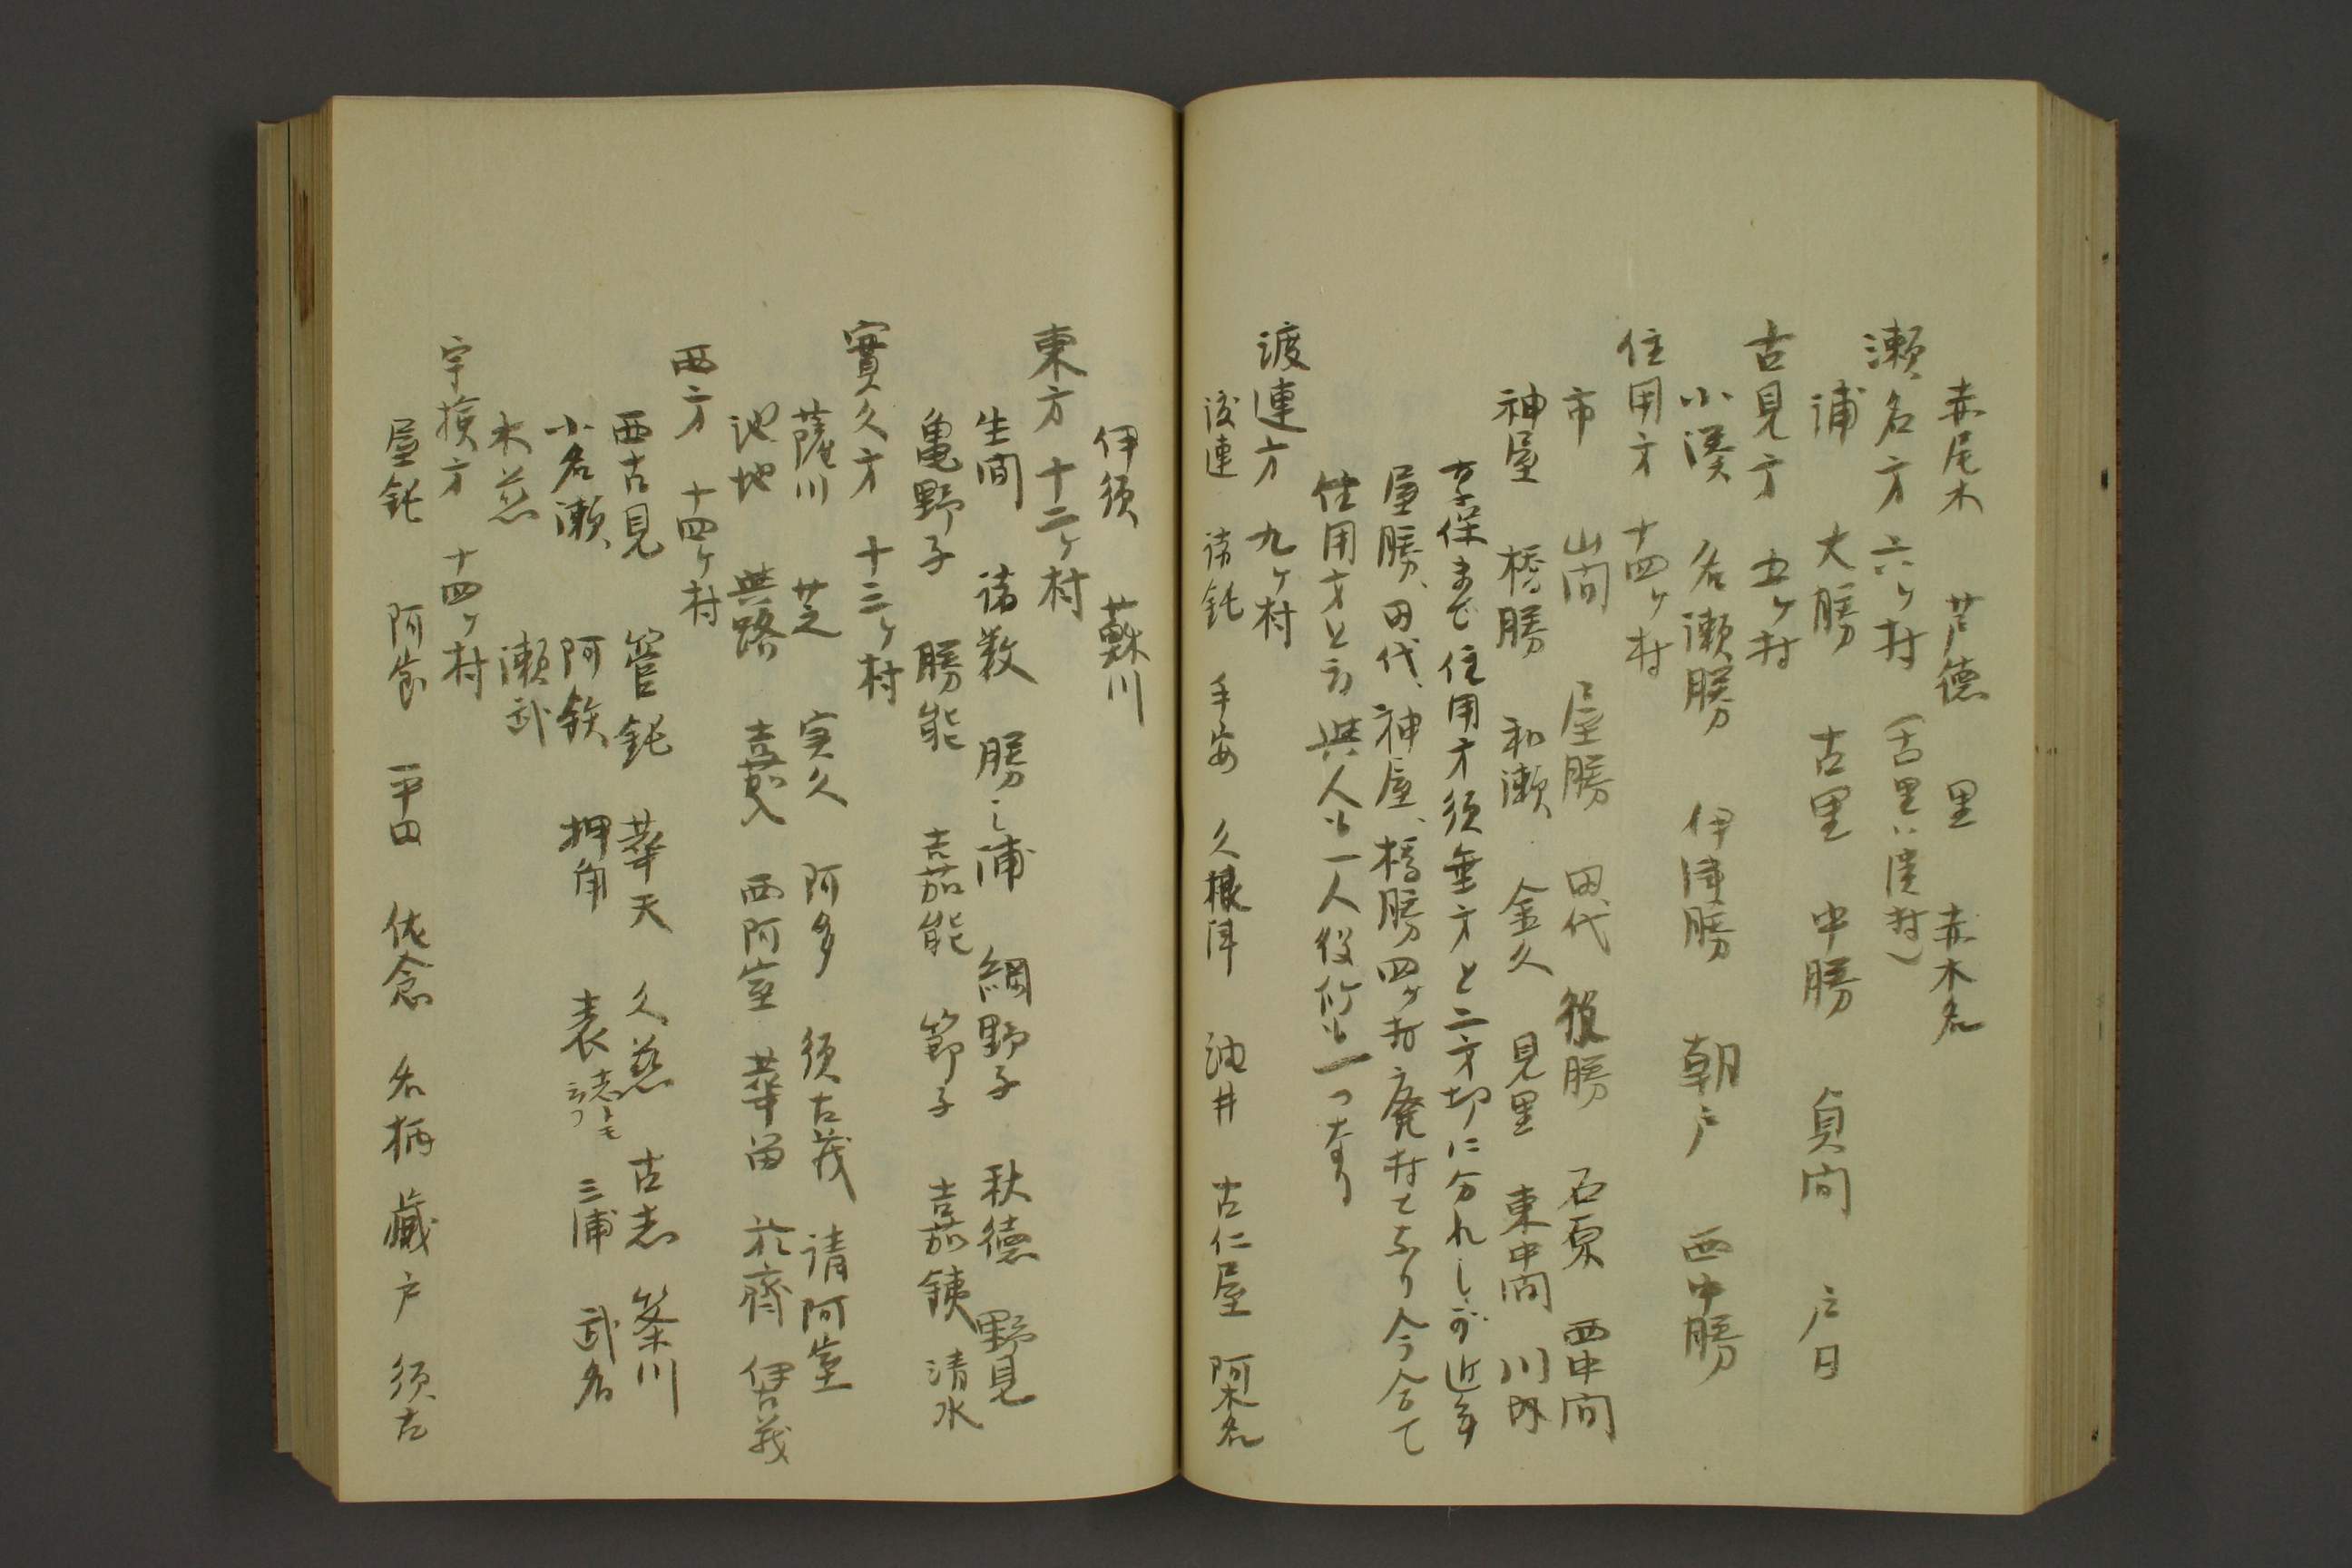 赤尾木 芦徳 里 赤木名
瀬名方 六ヶ村 (古里ハ濱村)
浦 大勝 古里 中勝 貞間 戸口
古見方 五ヶ村
小湊 名瀬勝 伊津勝 朝戸 西中勝
住用方 十四ヶ村
市 山間 屋勝 田代 役勝 石原 西中間
神屋 橋勝 和瀬 金久 見里 東中間 川内
享保まで住用方須垂方と二方切に分れしが近年
屋勝、田代、神屋、橋勝四ヶ村廃村となり今合て
住用方と云與人も一人役所も一つなり
渡連方 九ヶ村
渡連 諸鈍 手安 久根津 油井 古仁屋 阿木名
伊須 蘇川
東方 十二ヶ村
生間 諸数 勝し浦 網野子 秋徳 野見
亀野子 勝能 嘉茄能 節子 嘉茄鉄 清水
實久方 十二ヶ村
薩川 芝 実久 阿多 須古茂 請阿室
池地 與路 嘉入 西阿室 華留 於齊 伊古茂
西方 十四ヶ村
西古見 管鈍 華天 久慈 古志 篠川
小名瀬 阿鉄 押角 表 誌トモ云フ 三浦 武名
木慈 瀬武
宇検方 十四ヶ村
屋鈍 阿室 平田 佐念 名柄 蔵戸 須古